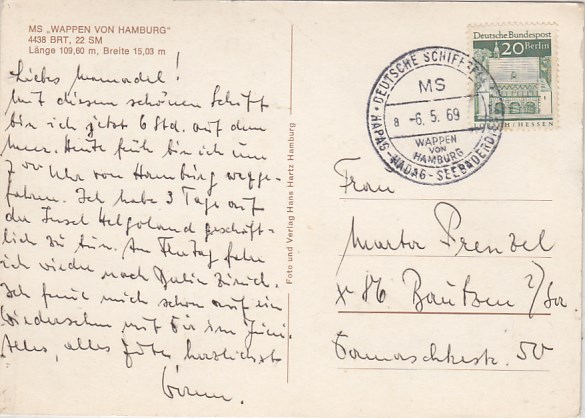 MS „WAPPEN VON HAMBURG"
4438 BRT, 22 SM
Länge 109,60 m, Breite 15,03 m
Liebes !
Mit diesem schönen Schiff
bin ich jetzt 6 Std. auf dem
Meer. Heute früh bin ich um
7⁰⁰ Uhr von Hamburg wegge-
fahren. Ich habe 3 Tage auf
der Insel Helgoland geschäft-
lich zu tun. Am Freitag fahre
ich wieder nach Berlin zurück.
Ich freue mich schon auf ein
Wiedersehen mit Dir im Juni.
Alles, alles Gute herzlichst
Foto und Verlag Hans Hartz Hamburg
DEUTSCHE SCHIFFSPOST
MS
8 -6.5.69
WAPPEN
VON
HAMBURG
HAPAG-HADAG-SEEBÄDERDIENST
Deutsche Bundespost
20 Berlin
LORSCH/HESSEN
Frau
Marta Prenzel
x 86 Bautzen 2/Sa.
50